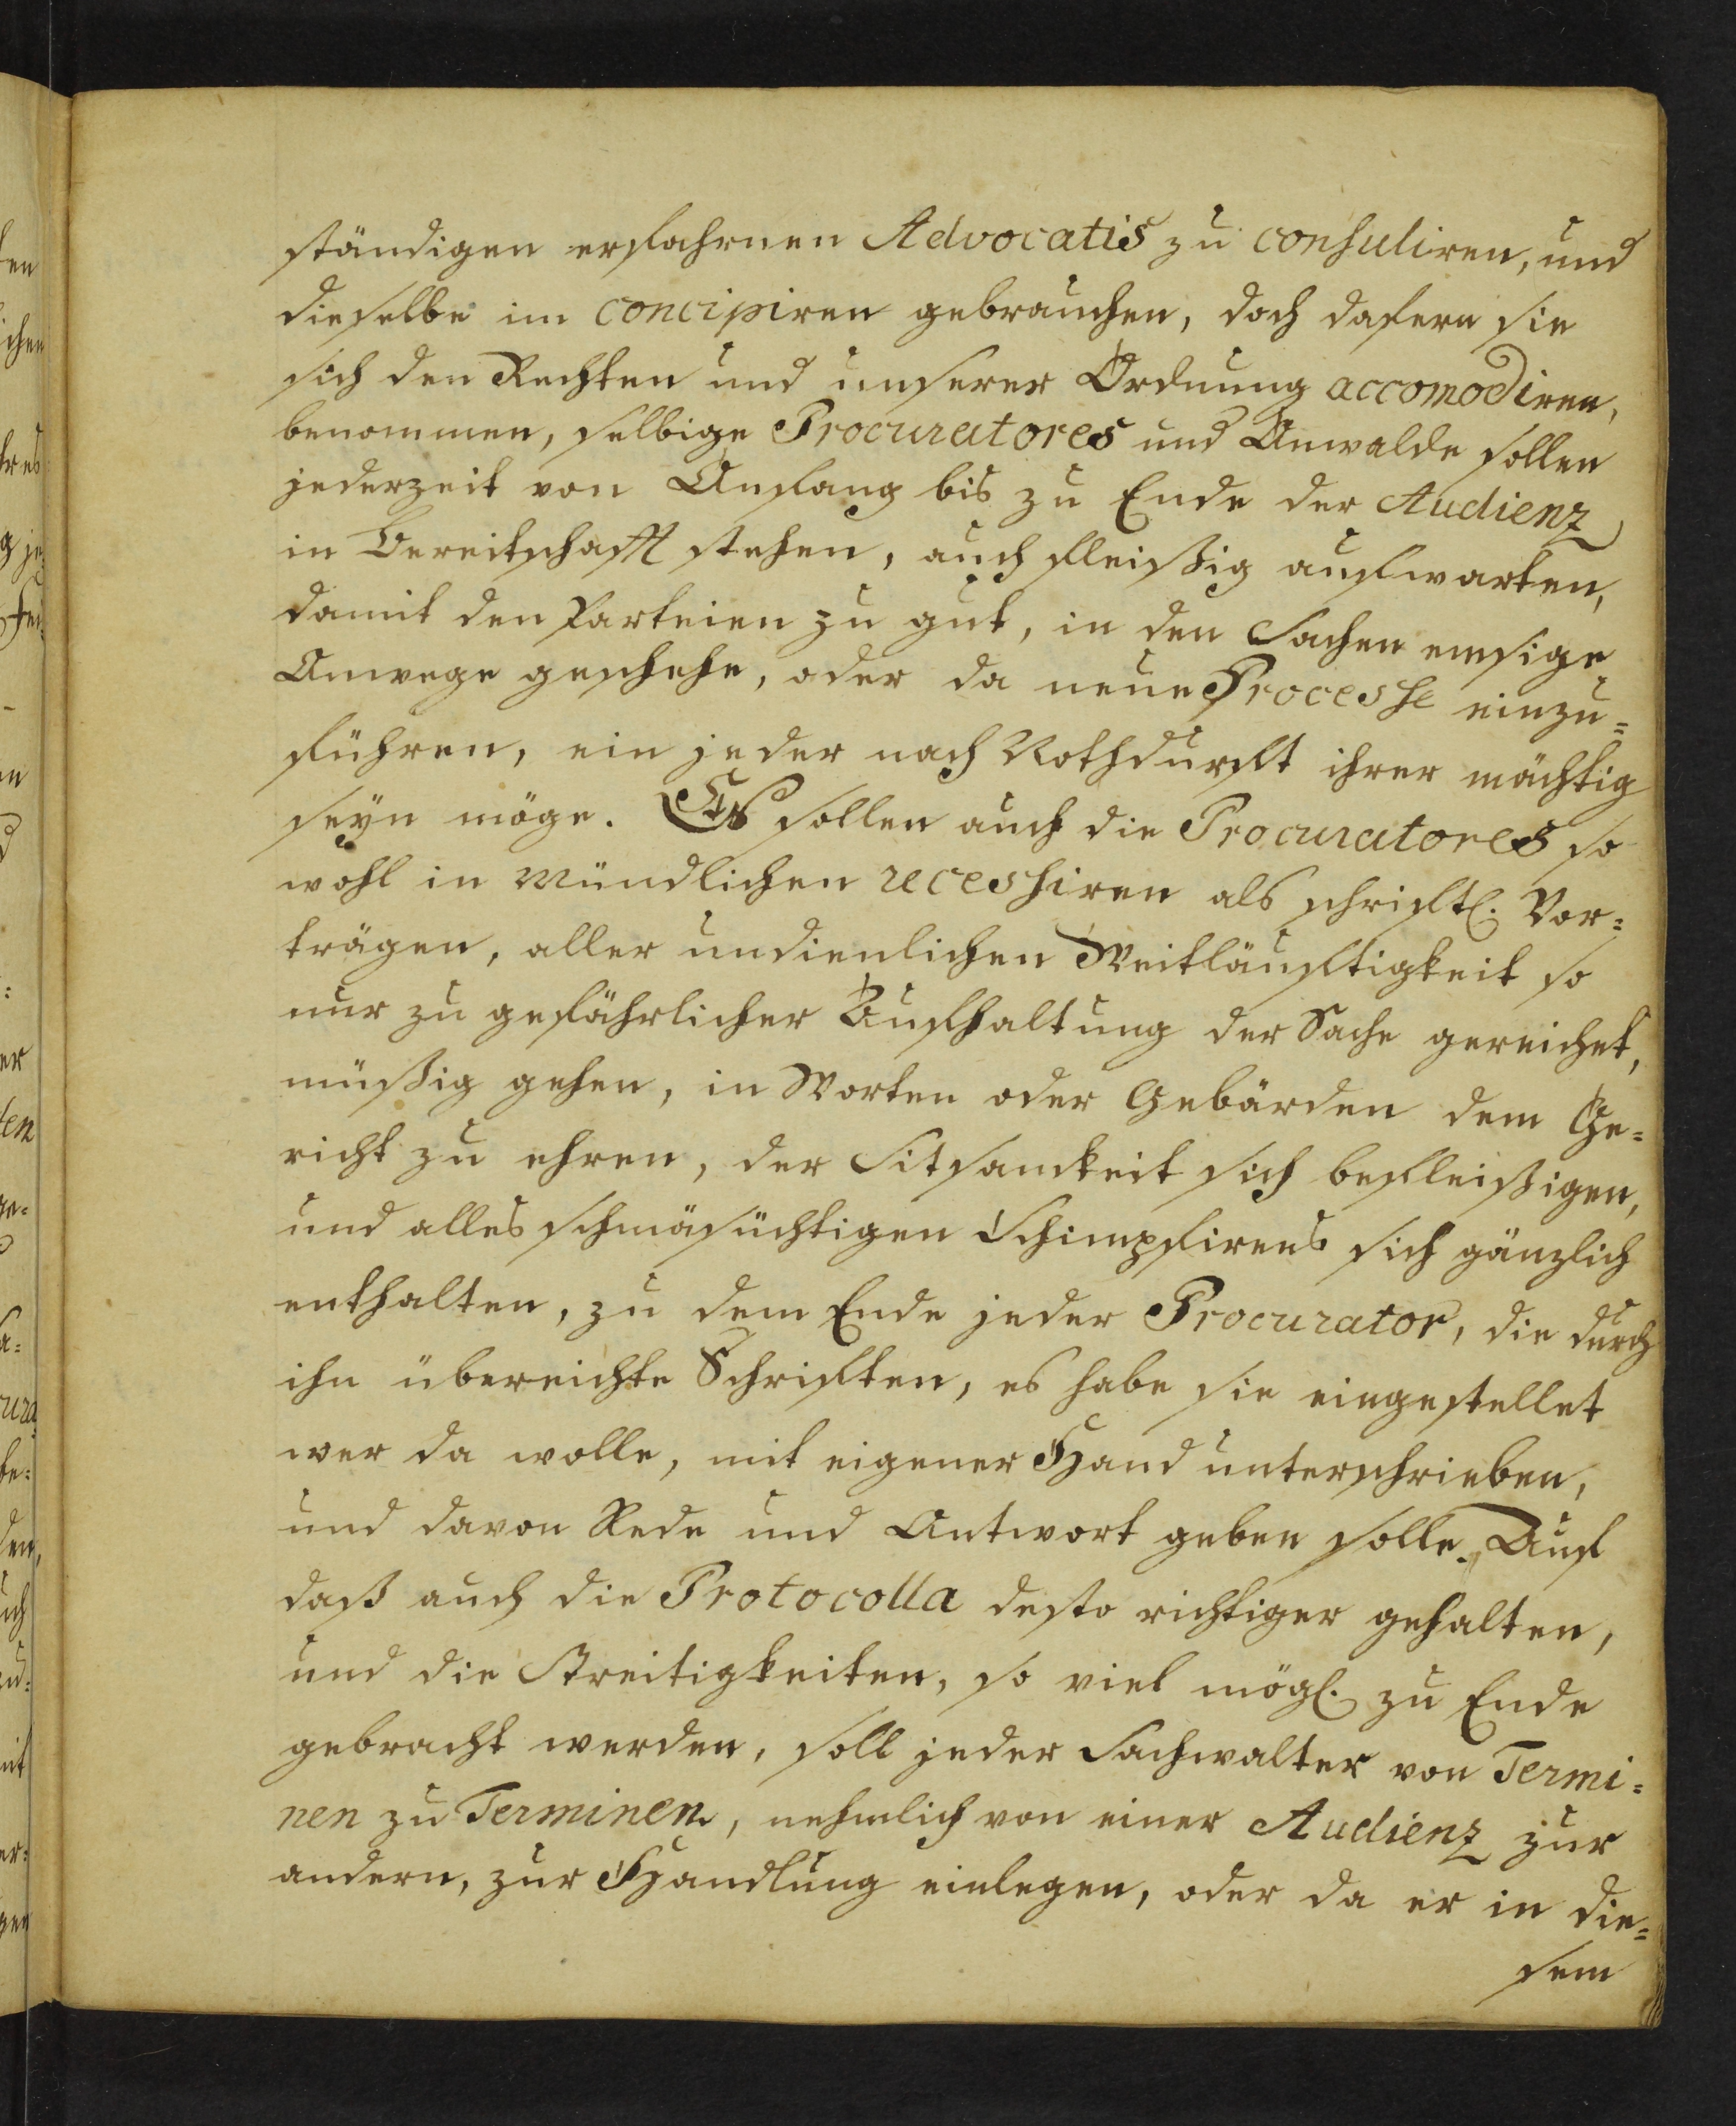 ständigen erfahrnen Advocatis zu consuliren, und
dieselbe im concipiren gebrauchen, doch dafern sie
sich den Rechten und unserer Ordnung accomodiren,
benommen, selbige Procuratores und Anwalde sollen
jederzeit von Anfang bis zu Ende der Audienz
in Bereitschafft stehen, auch fleißig aufwarten,
damit den Parteien zu gut, in den Sachen emsige
Anwege geschehe, oder da neue Processe einzu=
führen, ein jeder nach Nothdurfft ihrer mächtig
seÿn möge. Es sollen auch die Procuratores so
wohl in mündlichen recessiren als schriftl. Vor=
trägen, aller undienlichen Weitläuftigkeit so
nur zu gefährlicher Aufhaltung der Sache gereichet,
müßig gehen, in Worten oder Gebärden dem Ge=
richt zu ehren, der Sitsamkeit sich befleißigen,
und alles schmäsüchtigen Schimpfirens sich gänzlich
enthalten, zu dem Ende jeder Procurator, die durch
ihn übereichte Schriften, es habe sie eingestellet
wer da wolle, mit eigener Hand unterschrieben,
und davon Rede und Antwort geben solle. Auf
daß auch die Protocolla desto richtiger gehalten,
und die Streitigkeiten, so viel mögl. zu Ende
gebracht werden, soll jeder Sachwalter von Termi=
nen zu Terminen, nehmlich von einer Audienz zur
andern, zur Handlung einlegen, oder da er in die=
sem